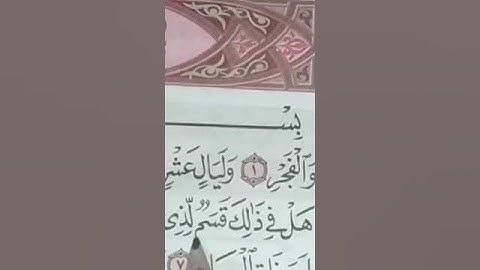 بِسْ
وَٱلْفَجْرِ ١ وَلَيَالٍ عَشْرٍ
هَلْ فِي ذَٰلِكَ قَسَمٌ لِّذِي
٧